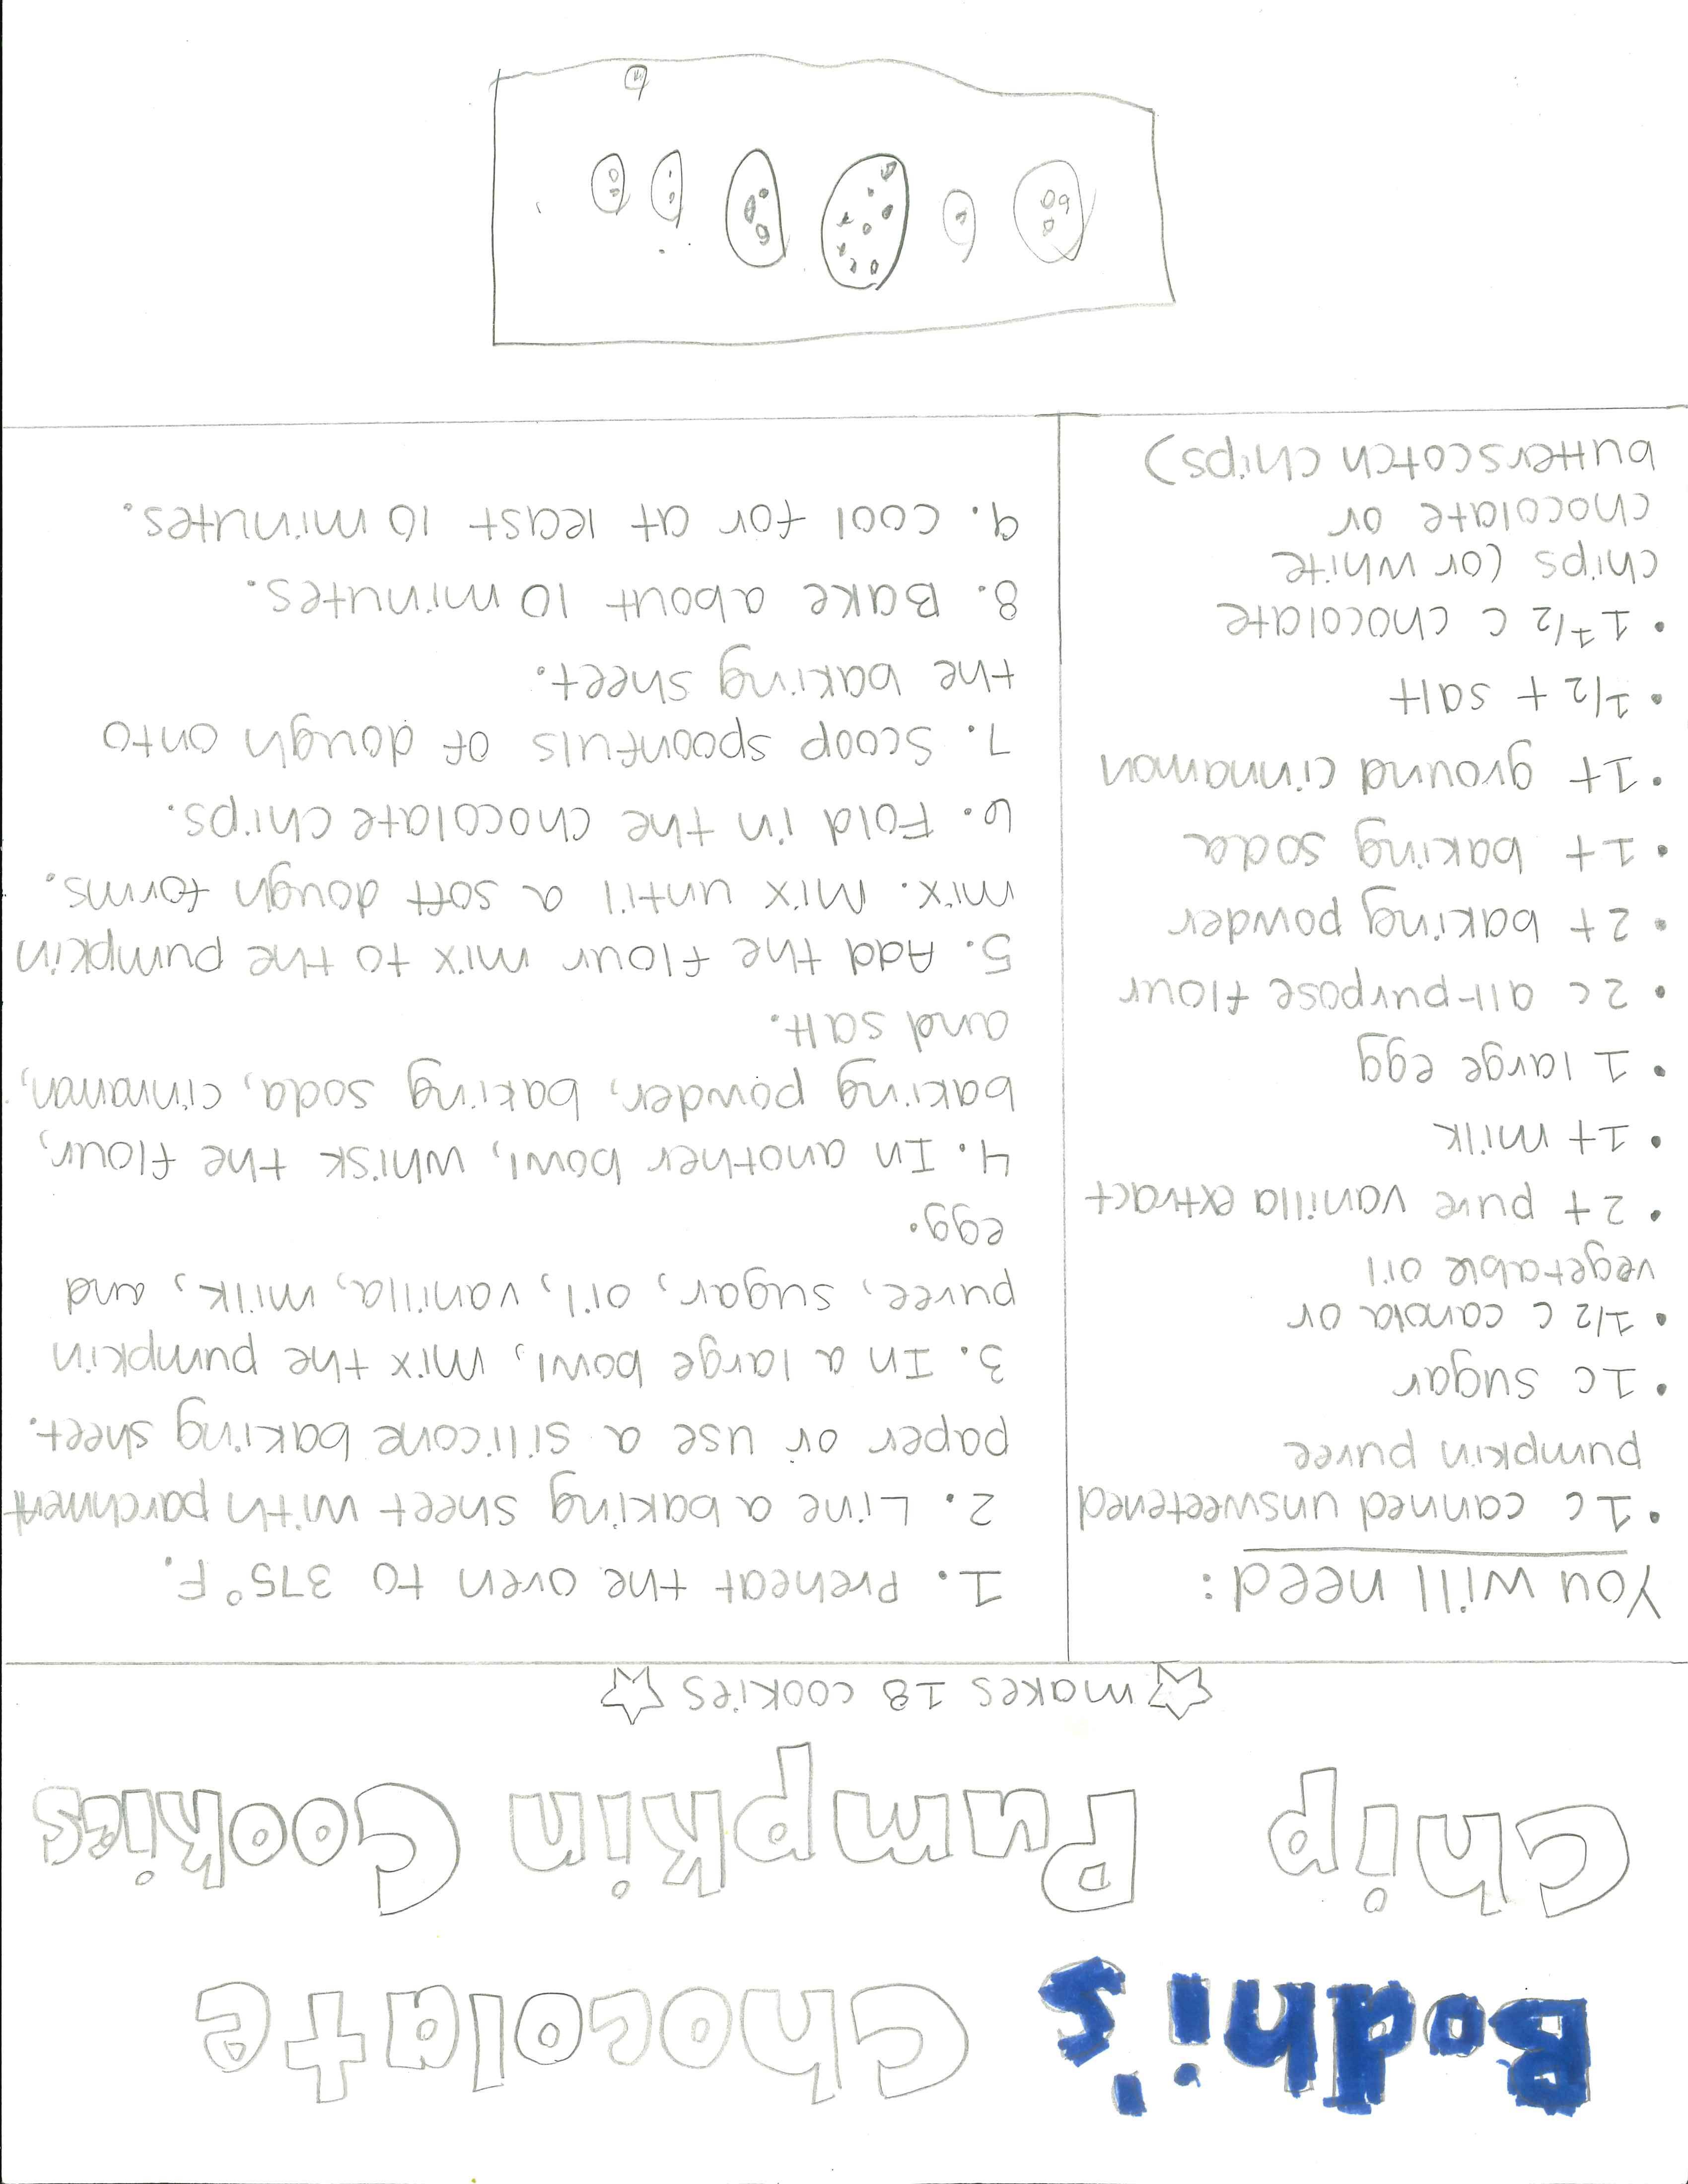 Bodhi's Chocolate
Chip Pumpkin Cookies
makes 18 cookies
You will need:
• 1c canned unsweetened
pumpkin puree
• 1c sugar
• 1/2 c canola or
vegetable oil
• 2t pure vanilla extract
• 1t milk
• 1 large egg
• 2c all-purpose flour
• 2t baking powder
• 1t baking soda
• 1t ground cinnamon
• 1/2 t salt
• 1 1/2 c chocolate
chips (or white
chocolate or
butterscotch chips)
1. Preheat the oven to 375°F.
2. Line a baking sheet with parchment
paper or use a silicone baking sheet.
3. In a large bowl, mix the pumpkin
puree, sugar, oil, vanilla, milk, and
egg.
4. In another bowl, whisk the flour,
baking powder, baking soda, cinnamon,
and salt.
5. Add the flour mix to the pumpkin
mix. Mix until a soft dough forms.
6. Fold in the chocolate chips.
7. Scoop spoonfuls of dough onto
the baking sheet.
8. Bake about 10 minutes.
9. Cool for at least 10 minutes.